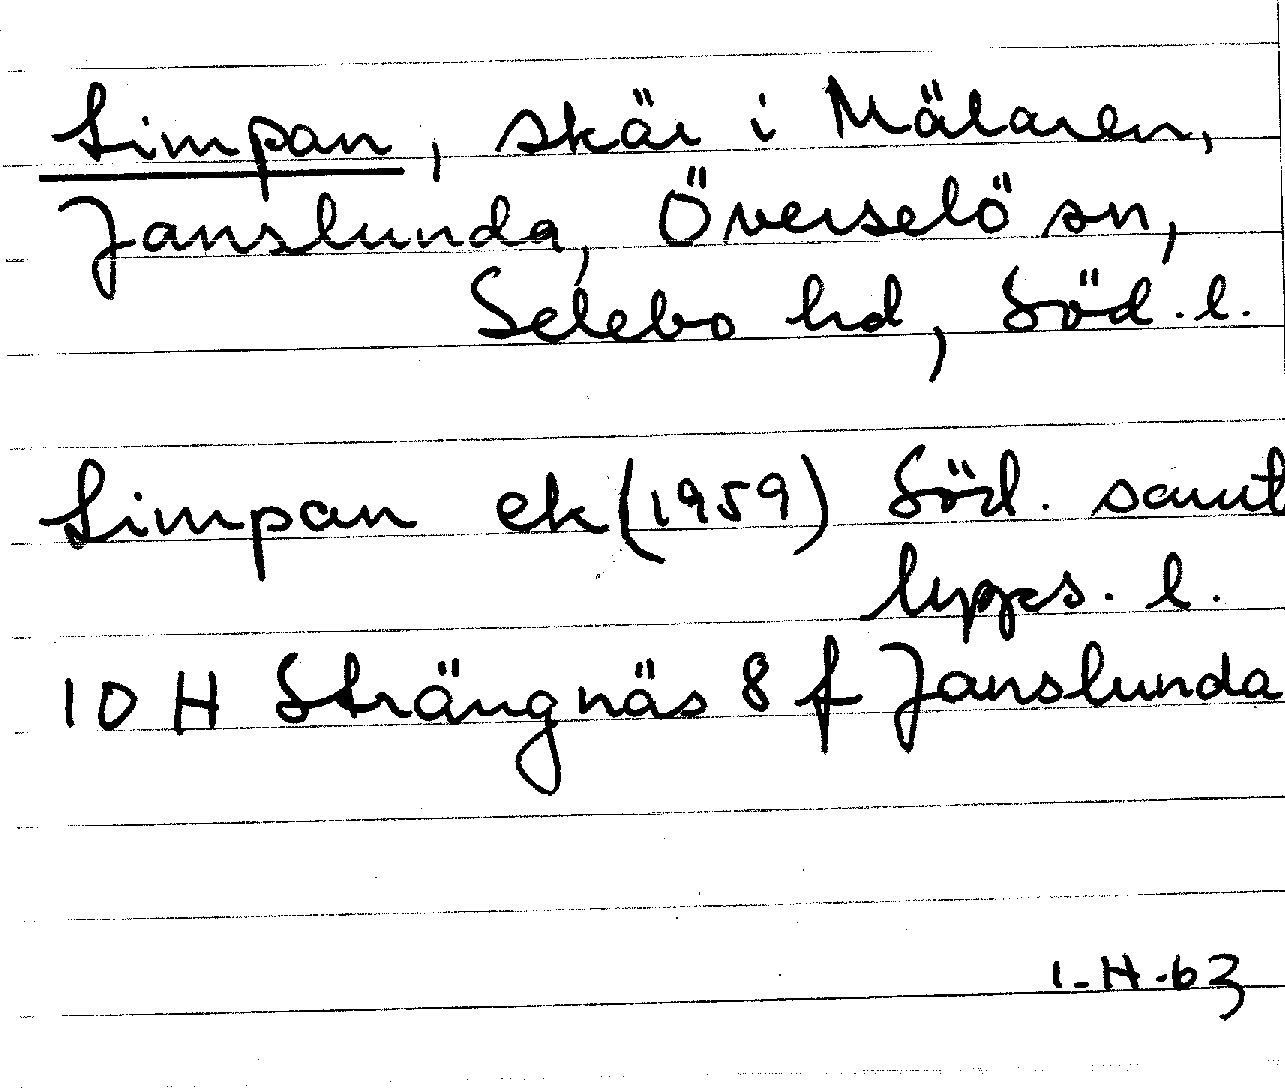 Limpan, skär i Mälaren,
Janslunda, Överselö sn,
Selebo hd, Söd. l.
Limpan ek (1959) Söd. samt
Upps. l.
10 H Strängnäs 8 f Janslunda
1-H-63